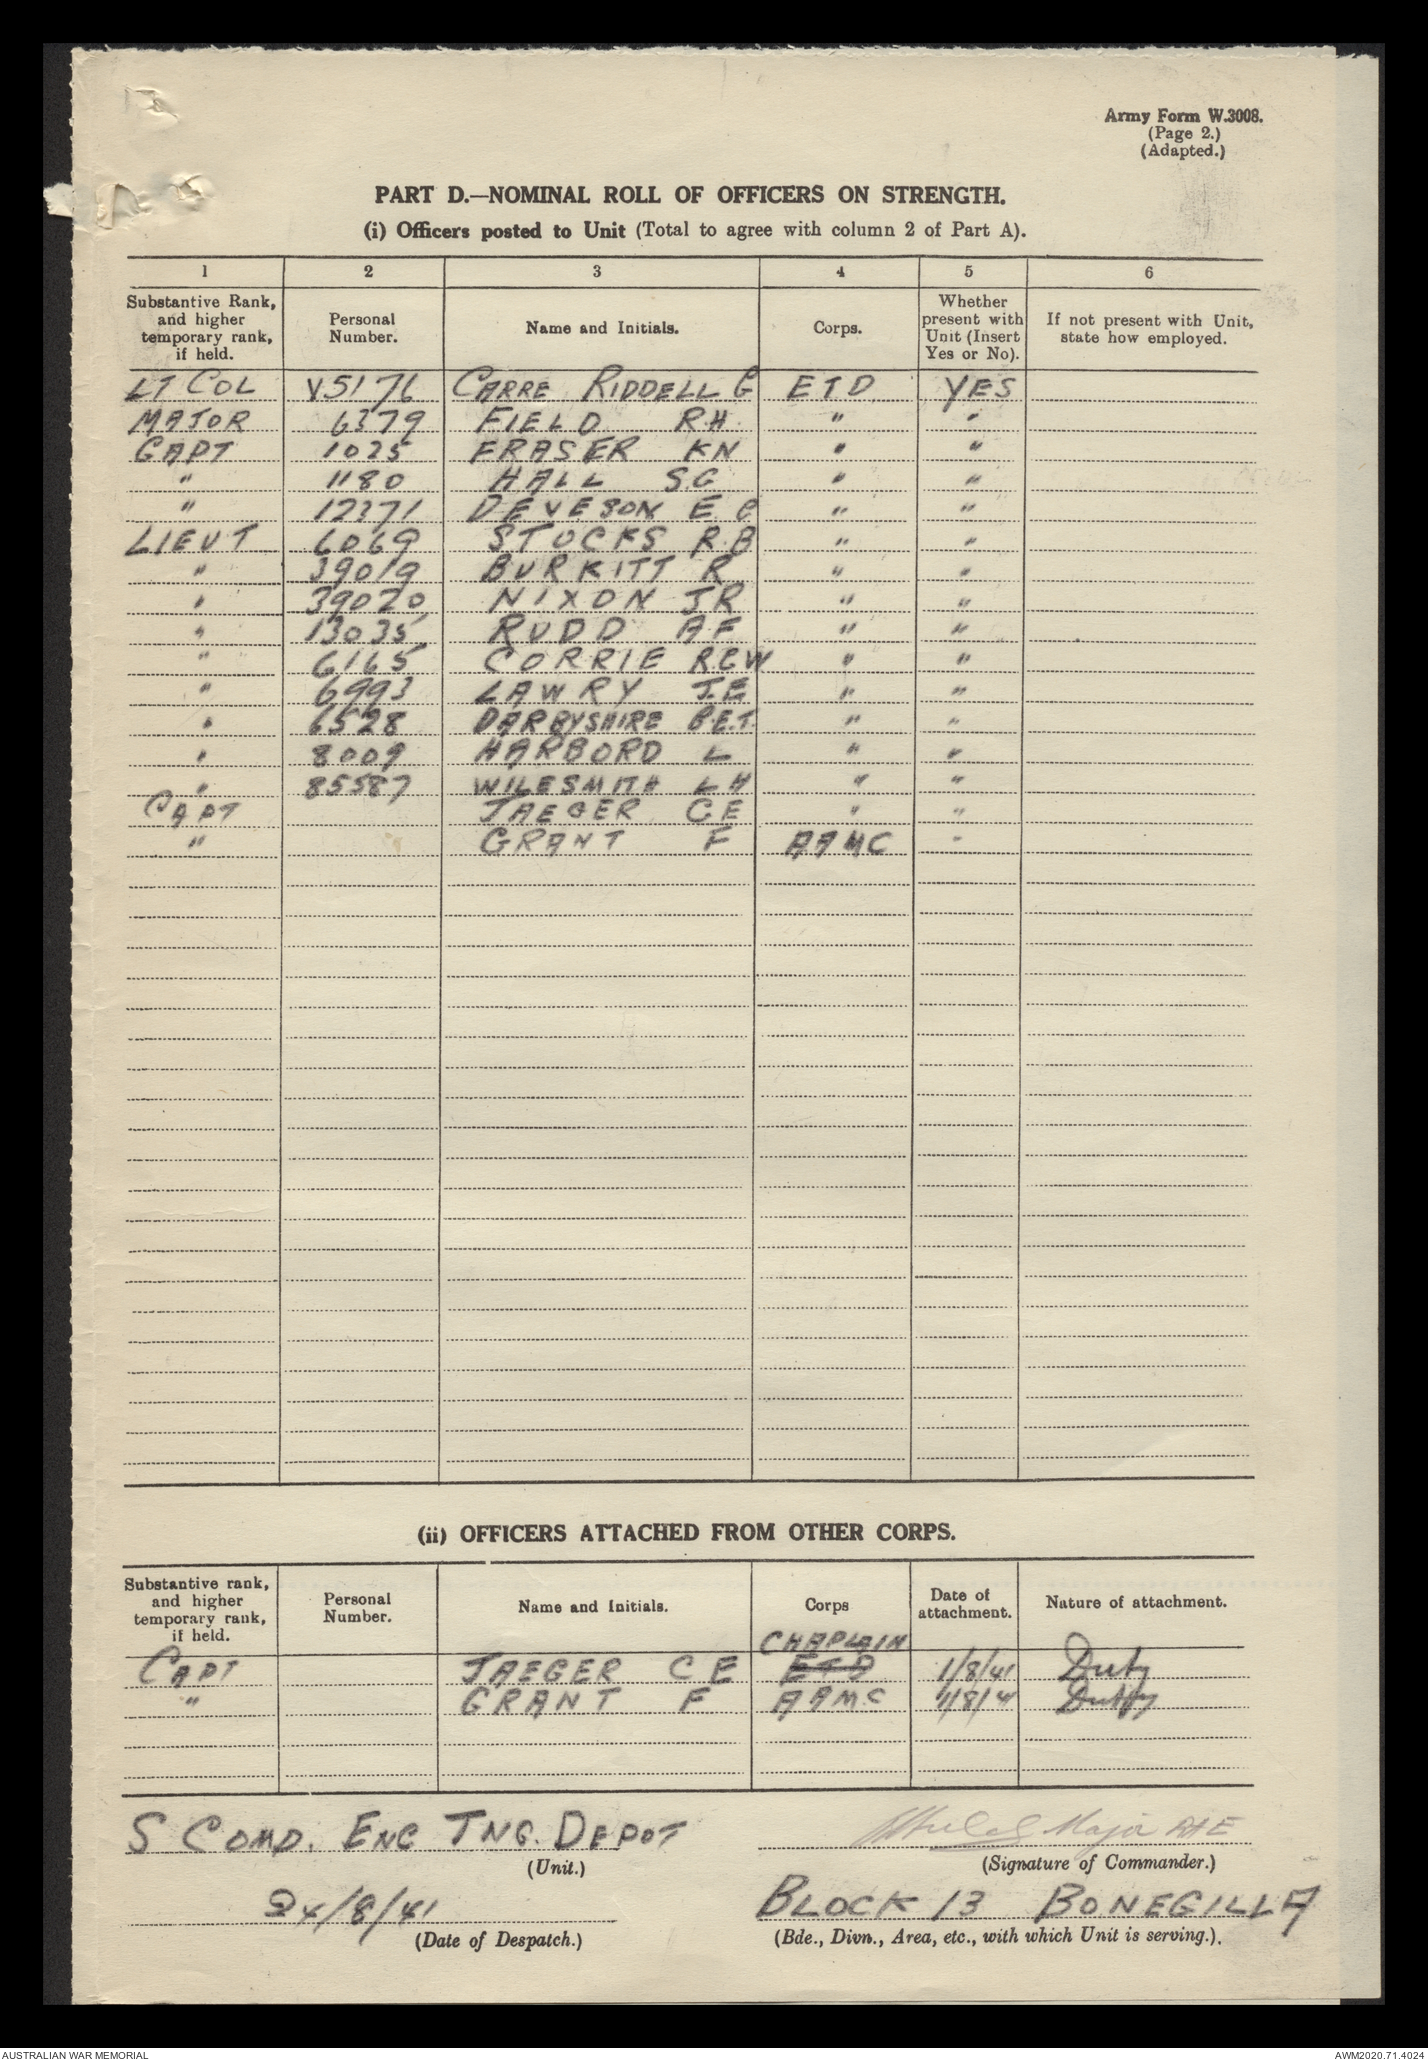 Army Form W.3008.
(Page 2.)
(Adapted.)
PART D.—NOMINAL ROLL OF OFFICERS ON STRENGTH.
(i) Officers posted to Unit (Total to agree with column 2 of Part A).
1 2 3 4 5 6
Substantive Rank, and higher temporary rank, if held. Personal Number. Name and Initials. Corps. Whether present with Unit (Insert Yes or No). If not present with Unit, state how employed.
LT COL V5176 CARRE RIDDELL G ETD YES
MAJOR 6379 FIELD RH " "
CAPT 1025 FRASER KN " "
" 1180 HALL SG " "
" 12371 DEVESON E C " "
LIEUT 6069 STOCKS R.B " "
" 39019 BURKITT R " "
" 39020 NIXON JR " "
" 13035 RUDD AF " "
" 6165 CORRIE R.C.W " "
" 6993 LAWRY J.E " "
" 6528 DARBYSHIRE B.E.T. " "
" 8009 HARBORD L " "
" 85587 WILESMITH L H " "
CAPT JAEGER CE " "
" GRANT F AAMC "
(ii) OFFICERS ATTACHED FROM OTHER CORPS.
Substantive rank, and higher temporary rank, if held. Personal Number. Name and Initials. Corps Date of attachment. Nature of attachment.
CHAPLAIN
CAPT JAEGER CE ETD 1/8/41 Duty
" GRANT F AAMC 1/8/4 Duty
S COMD. ENG TNG. DEPOT
Major RAE
(Unit.)
(Signature of Commander.)
24/8/41
BLOCK 13 BONEGILLA
(Date of Despatch.)
(Bde., Divn., Area, etc., with which Unit is serving.).
AUSTRALIAN WAR MEMORIAL
AWM2020.71.4024